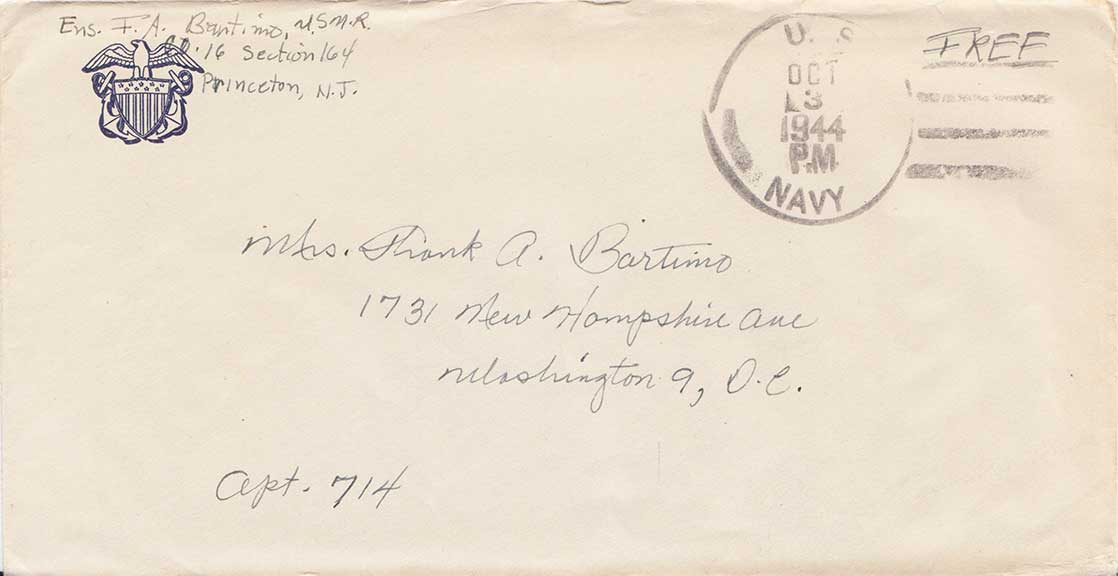 Ens. F. A. Bartimo, U.S.N.R.
16 Section 164
Princeton, N.J.
U. S.
OCT
1944
P.M.
NAVY
FREE
Mrs. Frank A. Bartimo
1731 New Hampshire Ave
Washington 9, D.C.
Apt. 714